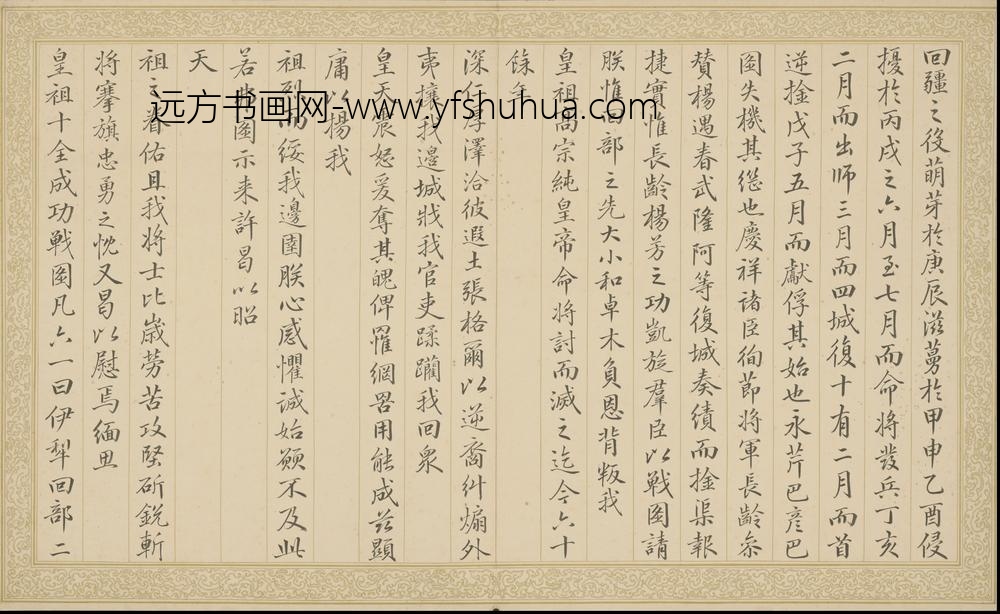 回疆之役萌芽於庚辰滋蔓於甲申乙酉侵
擾於丙戌之六月至七月而命將發兵丁亥
二月而出師三月而四城復十有二月而首
逆擒戊子五月而獻俘其始也永芹巴彥巴
圖失機其繼也慶祥諸臣徇節將軍長齡叅
贊楊遇春武隆阿等復城奏績而擒渠報
捷實惟長齡楊芳之功凱旋羣臣以戰圖請
朕惟回部之先大小和卓木負恩背叛我
皇祖高宗純皇帝命將討而滅之迄今六十
餘年
深仁厚澤洽彼遐土張格爾以逆裔糾煽外
夷攘我邊城戕我官吏蹂躪我回衆
皇天震怒爰奪其魄俾罹網罟用能成茲顯
庸以揚我
祖烈而綏我邊圉朕心感懼誠始願不及此
若非圖示来許曷以昭
天
祖之眷佑且我將士比歲勞苦攻堅斫銳斬
將搴旗忠勇之忱又曷以慰焉緬思
皇祖十全成功戰圖凡六一曰伊犁回部二
远方书画网-www.yfshuhua.com